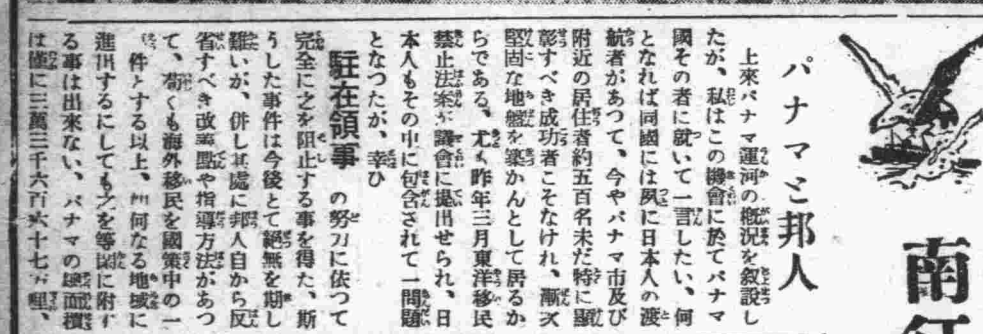 パナマと邦人
上來パナマ運河の概況を叙説し
たが、私はこの機會に於てパナマ
國その者に就いて一言したい、何
となれば同國には夙に日本人の渡
航者があつて、今やパナマ市及び
附近の居住者約五百名未だ特に顯
彰すべき成功者こそなけれ、漸次
堅固な地盤を築かんとして居るか
らである、尤も昨年三月東洋移民
禁止法案が議會に提出せられ、日
本人もその中に包含されて一問題
となつたが、幸ひ
駐在領事の努力に依つて
完全に之を阻止する事を得た、斯
うした事件は今後とて絕無を期し
難いが、併し其處に邦人自から反
省すべき改善點や指導方法があつ
て、苟くも海外移民を國策中の一
件とする以上、如何なる地域に
進出するにしても之を等閑に附す
る事は出來ない、パナマの總面積
は僅に三萬三千六百六十七方哩、
南